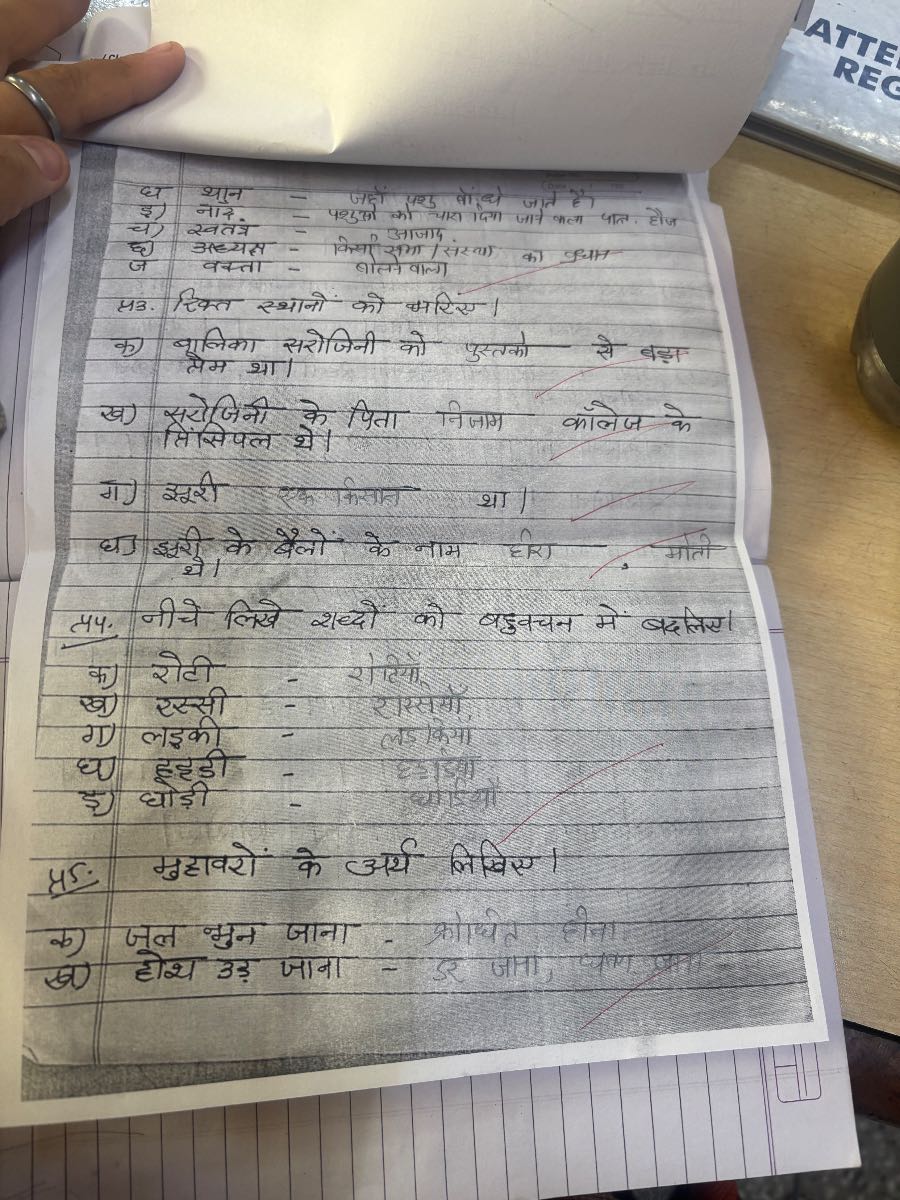 ATTE
REG
घ थान - जहाँ पशु बाँधे जाते हैं।
ङ) नाद - पशुओं को चारा दिया जाने वाला पात्र, हौज
च) स्वतंत्र - आजाद
छ) अध्यक्ष - किसी सभा/संस्था का प्रधान
ज वक्ता - बोलने वाला
प्र3. रिक्त स्थानों को भरिए।
क) बालिका सरोजिनी को पुस्तकों से बड़ा
प्रेम था।
ख) सरोजिनी के पिता निजाम कॉलेज के
प्रिंसिपल थे।
ग) झूरी एक किसान था।
घ) झूरी के बैलों के नाम हीरा , मोती
थे।
प्र4. नीचे लिखे शब्दों को बहुवचन में बदलिए।
क) रोटी - रोटियाँ
ख) रस्सी - रस्सियाँ
ग) लड़की - लडकियाँ
घ) हड्डी - हड्डियाँ
ङ) घोड़ी - घोडियाँ
प्र5. मुहावरों के अर्थ लिखिए।
क) जल भुन जाना - क्रोधित होना
ख) होश उड़ जाना - डर जाना, जाना